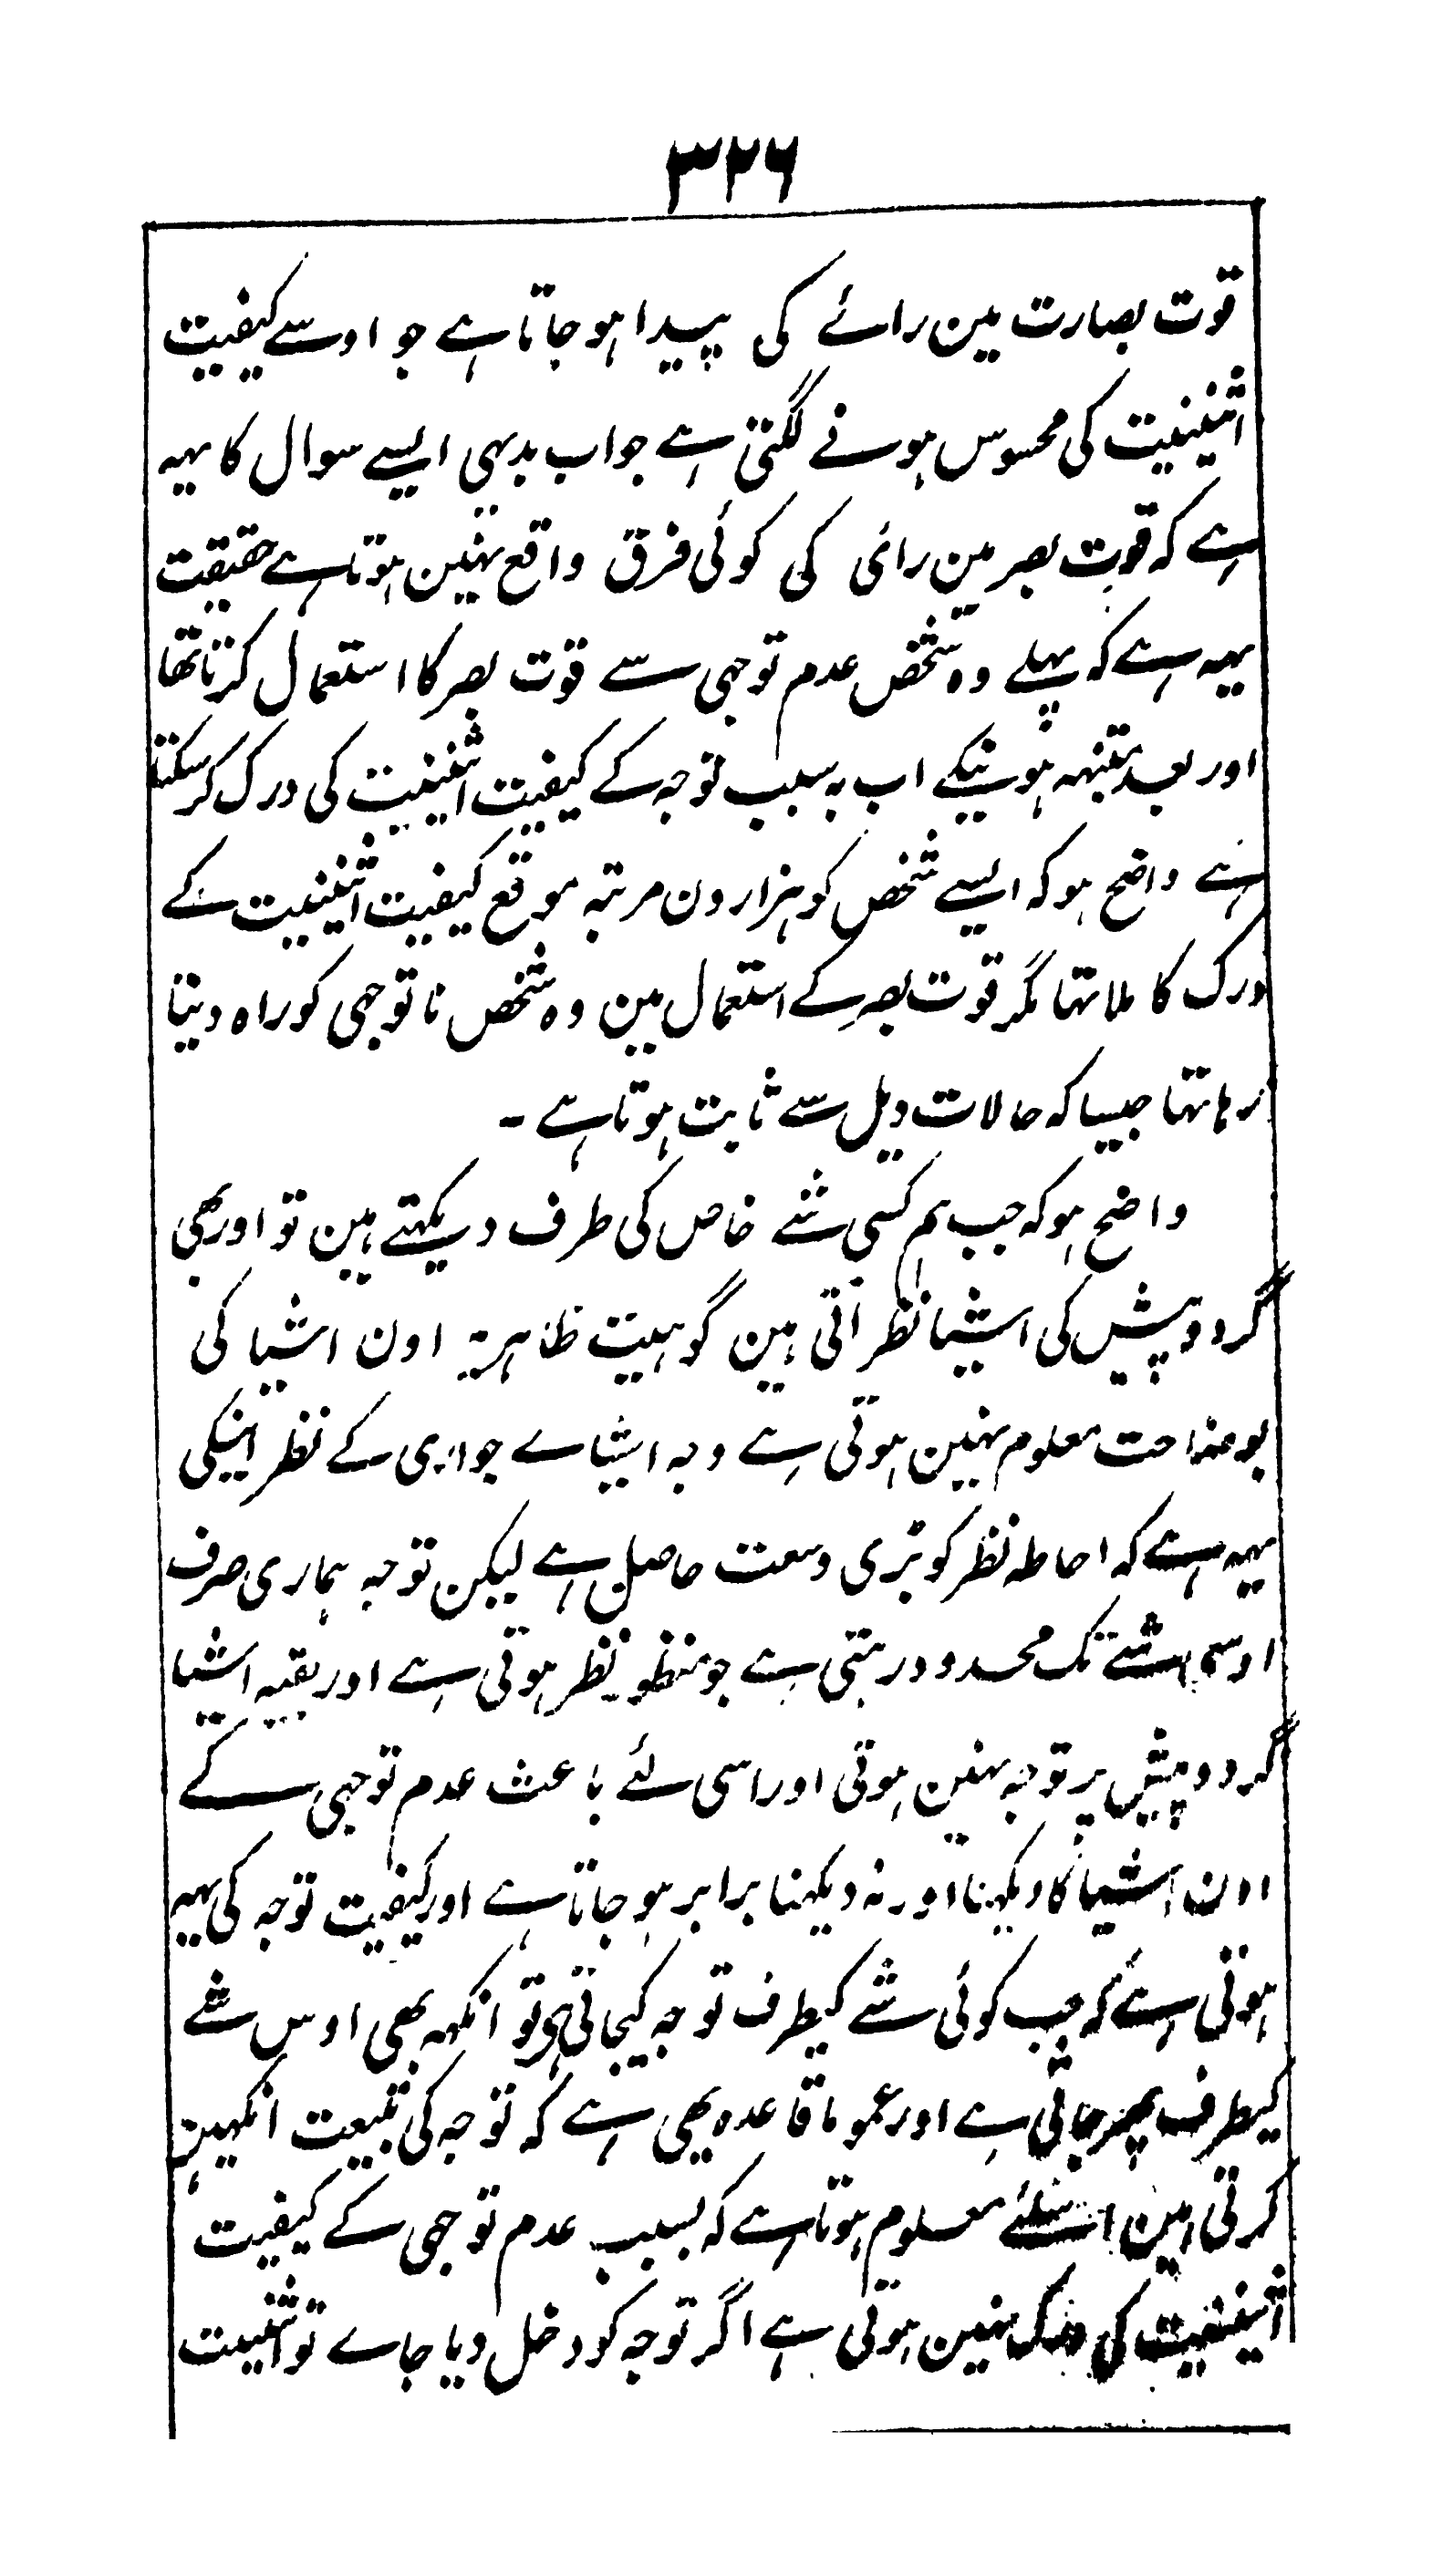 ۳۲۶
قوت بصارت مین رائے کی پیدا ہو جاتا ہے جو اوسے کیفیت
اثنینیت کی محسوس ہونے لگتی ہے جواب بدیہی ایسے سوال کا یہہ
ہے کہ قوت بصر مین رائی کی کوئی فرق واقع نہین ہوتا ہے حقیقت
یہہ ہے کہ پہلے وہ شخص عدم توجہی سے قوت بصر کا استعمال کرتا تھا
اور بعد متنبہہ ہونیکے اب بہ سبب توجہ کے کیفیت اثنینیت کی درک کر سکتا
ہے واضح ہو کہ ایسے شخص کو ہزارون مرتبہ موقع کیفیت اثنینیت کے
درک کا ملا تہا مگر قوت بصر کے استعمال مین وہ شخص نا توجہی کو راہ دیتا
رہا تہا جیسا کہ حالات ذیل سے ثابت ہوتا ہے ۔
واضح ہو کہ جب ہم کسی شے خاص کی طرف دیکہتے ہین تو اور بھی
گرد و پیش کی اشیا نظر آتی ہین گو ہیت ظاہریہ اون اشیا کی
بوضاحت معلوم نہین ہوتی ہے وجہ اشیاے جواری کے نظر آنیکی
یہہ ہے کہ احاطہ نظر کو بڑی وسعت حاصل ہے لیکن توجہ ہماری صرف
اوسی شے تک محدود رہتی ہے جو منظور نظر ہوتی ہے اور بقیہ اشیا
گرد و پیش پر توجہ نہین ہوتی اور اسی لئے باعث عدم توجہی کے
اون اشیا کا دیکہنا اور نہ دیکہنا برابر ہو جاتا ہے اور کیفیت توجہ کی یہہ
ہوتی ہے کہ جب کوئی شے کیطرف توجہ کیجاتی ہی تو انکہہ بھی اوس شے
کیطرف پھر جاتی ہے اور عموماً قاعدہ بھی ہے کہ توجہ کی تبیعت انکہین
کرتی ہین اسلئے معلوم ہوتا ہے کہ بسبب عدم توجہی کے کیفیت
اثنینیت کی درک نہین ہوتی ہے اگر توجہ کو دخل دیا جاے تو اثنییت